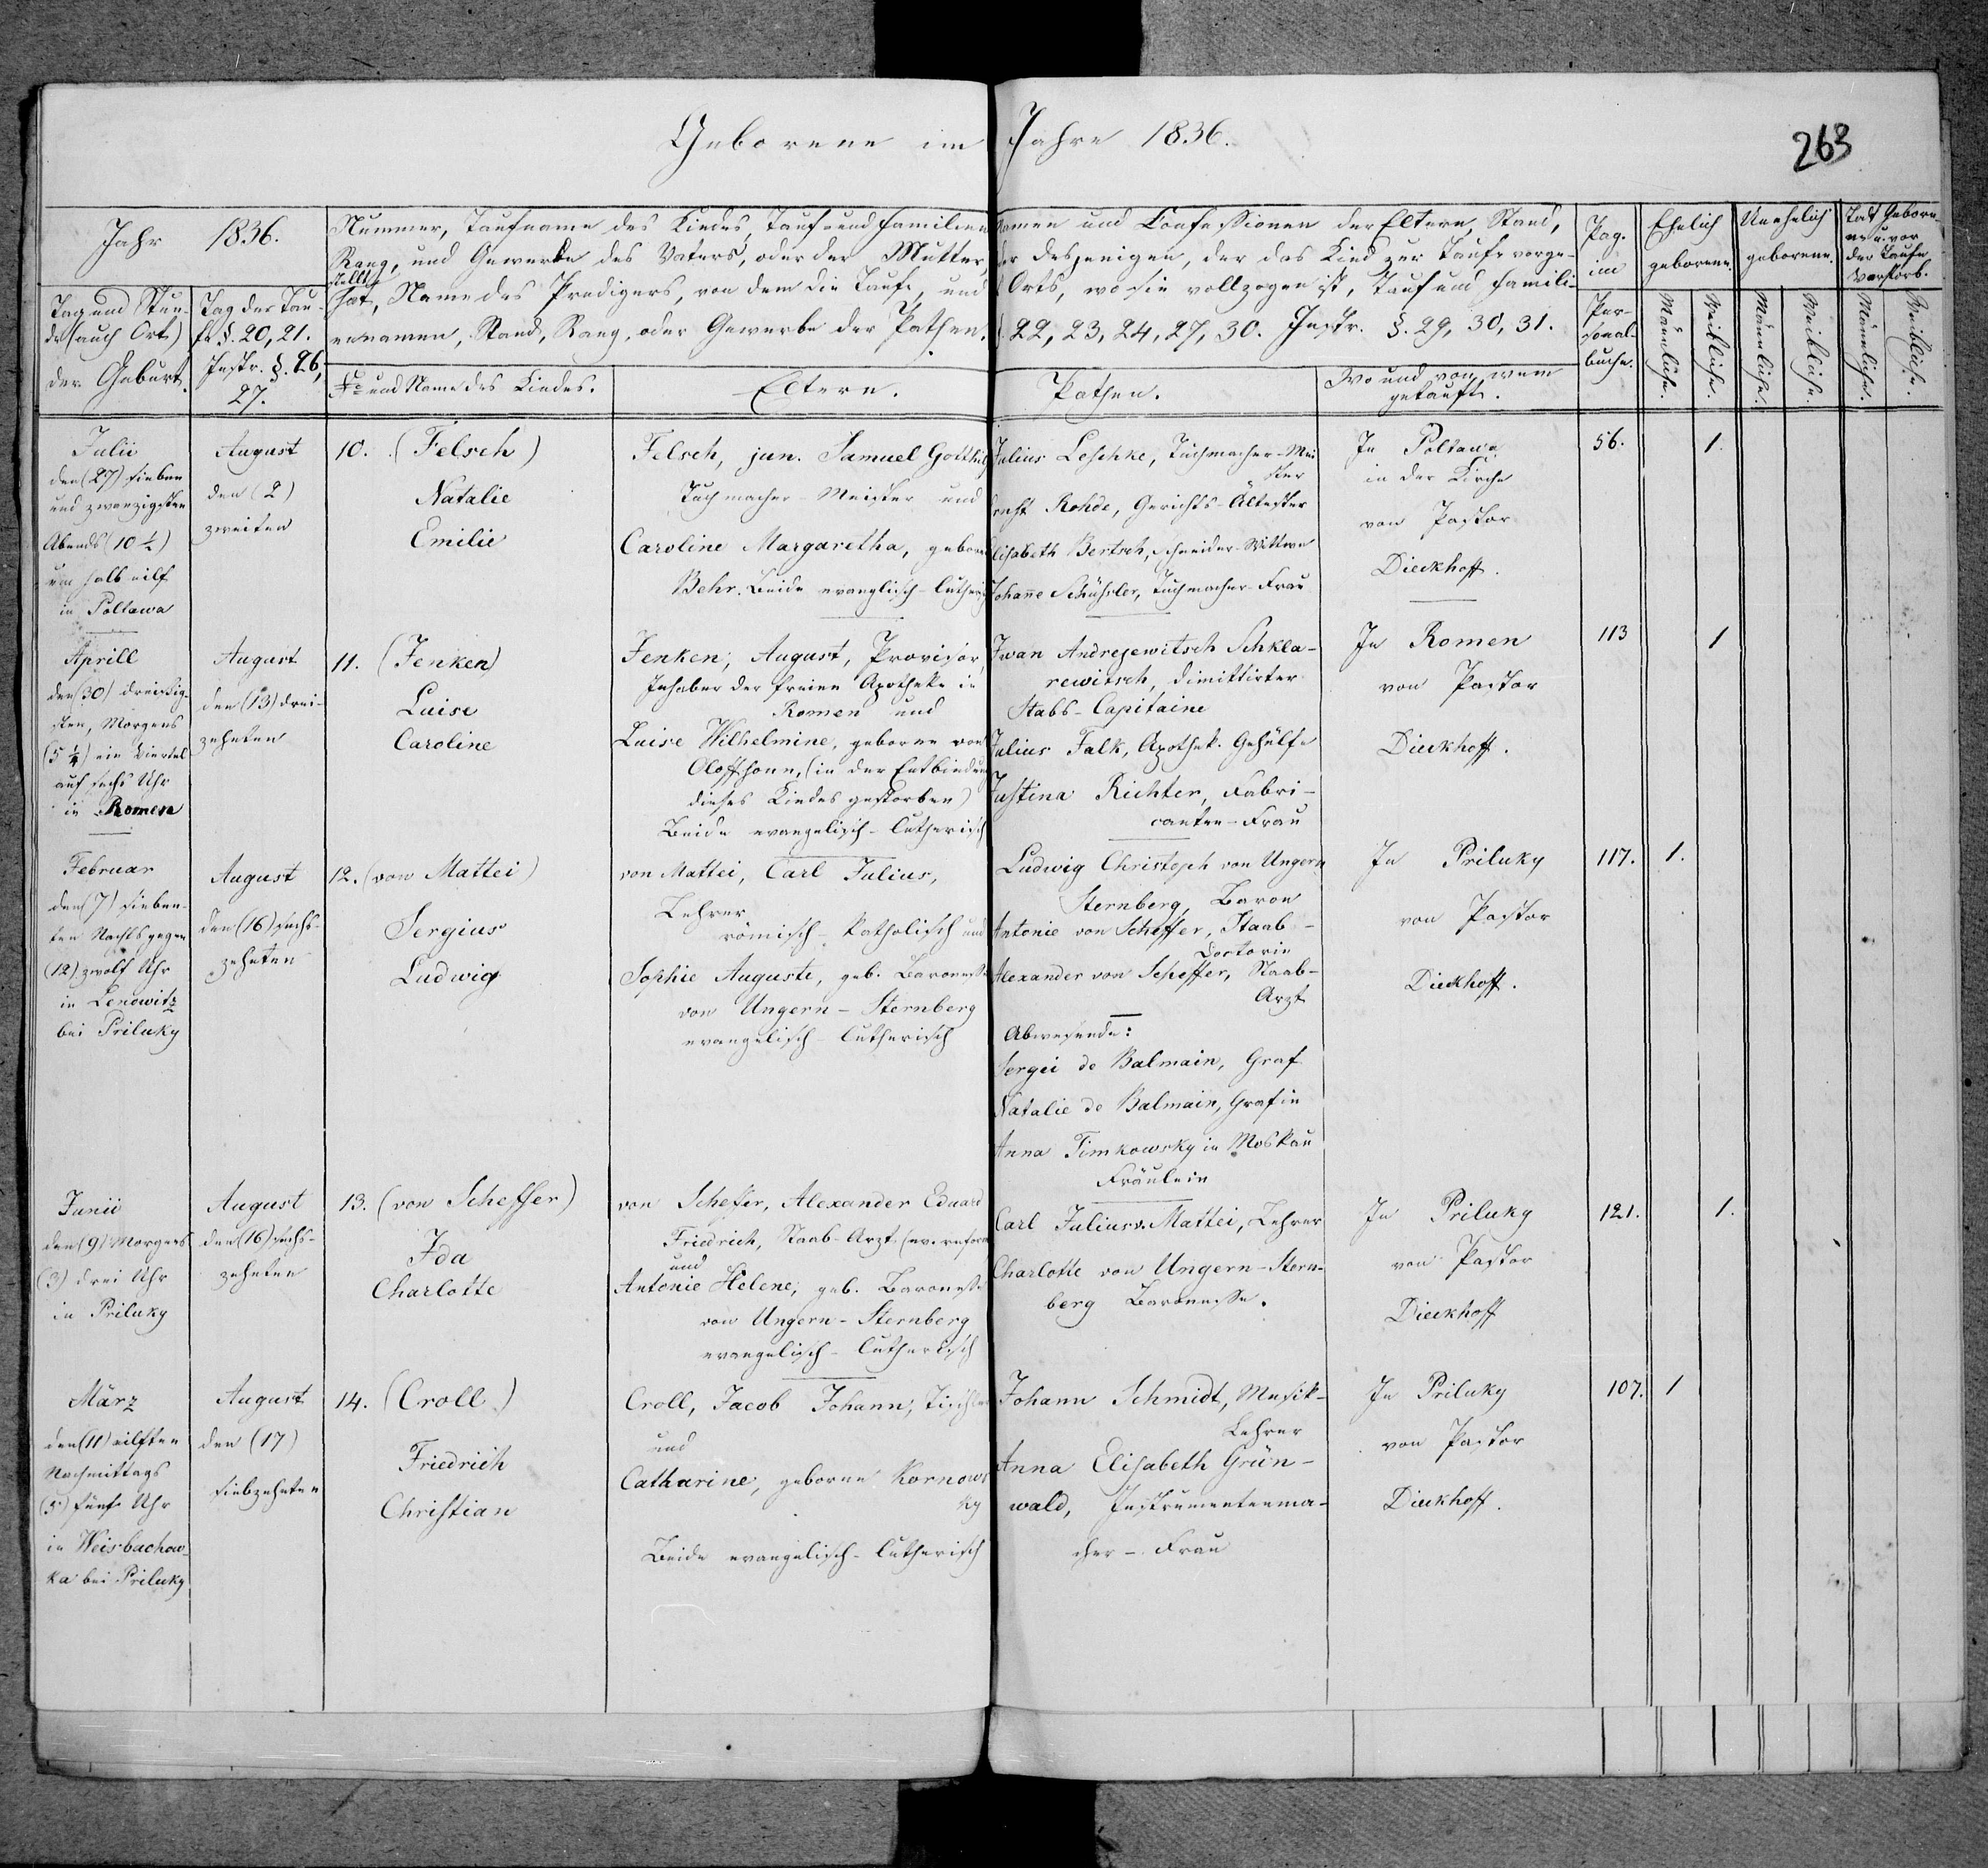 Geborene im Jahre 1836.
263
Jahr 1836.
Tag und Stun-
de (auch Ort)
der Geburt.
Tag der Tau-
fe §. 20, 21.
Instr. §. 26,
27.
Nummer, Taufname des Kindes, Tauf und Familien
Namen und Confessionen der Eltern, Stand,
Rang, und Gewerbe des Vaters, oder der Mutter,
oder desjenigen, der das Kind zur Taufe vorge-
stellt
hat, Name des Predigers, von dem die Taufe, und
Orts, wo sie vollzogen ist, Tauf und Famili-
ennamen, Stand, Rang, oder Gewerbe der Pathen.
§ 22, 23, 24, 27, 30. Instr. §. 29, 30, 31.
No und Name des Kindes.
Eltern.
Pathen.
Wo und von wem
getauft.
Pag.
im
Per-
sonal-
buche.
Ehelich
geborene.
Männliche.
Weibliche.
Unehelich
geborene.
Männliche.
Weibliche.
Todt Gebore-
ne u. vor
der Taufe
Verstorb.
Männliche.
Weibliche.
Julii
den (27) sieben
und zwanzigsten
Abends (10 ½)
um halb eilf
in Poltawa
August
den (2)
zweiten
10. (Felsch)
Natalie
Emilie
Felsch, jun. Samuel Gotthilf
Tuchmacher-Meister und
Caroline Margaretha, geborene
Behr. Beide evanglisch-lutherisch
Julius Leschke, Tuchmacher-Mei
ster
Rohde, Gerichts-Ältester
Elisabeth Bertsch, Schneider-Wittwe
Johane Schüssler, Tuchmacher-Frau
In Poltawa
in der Kirche
von Pastor
Dieckhoff.
56.
1.
Aprill
den (30) dreißig-
sten, Morgens
(5 ¼) ein Viertel
auf sechs Uhr
in Romen
August
den (13) drei-
zehnten
11. (Jenken)
Luise
Caroline
Jenken, August, Provisor,
Inhaber der freien Apotheke in
Romen und
Luise Wilhelmine, geborne von
Oloffsonn, (in der Entbindung
dieses Kindes gestorben)
Beide evangelisch-lutherisch
Iwan Andrejewitsch Schkla-
rewitsch, dimittirter
Stabs-Capitaine
Julius Falk, Apothek. Gehülfe
Justina Richter, Fabri-
canten-Frau
In Romen
von Pastor
Dieckhoff.
113
1
Februar
den (7) sieben-
ten Nachts gegen
(12) zwölf Uhr
in Lenowitz
bei Priluky
August
den (16) sechs-
zehnten
12. (von Mattei)
Sergius
Ludwig
von Mattei, Carl Julius,
Lehrer
römisch-katholisch und
Sophie Auguste, geb. Baronesse
von Ungern-Sternberg
evangelisch-lutherisch
Ludwig Christoph von Ungern
Sternberg, Baron
Antonie von Scheffer, Staab-
Doctorin
Alexander von Scheffer, Staab-
Arzt
Abwesende:
Sergei de Balmain, Graf
Natalie de Balmain, Gräfin
Anna Timkowsky in Moskau
Fräulein
In Priluky
von Pastor
Dieckhoff.
117.
1.
Junii
den (9) Morgens
(3) drei Uhr
in Priluky
August
den (16) sechs-
zehnten
13. (von Scheffer)
Ida
Charlotte
von Scheffer, Alexander Eduard
Friedrich, Staab-Arzt (ev. reform
und
Antonie Helene, geb. Baronesse
von Ungern-Sternberg
evangelisch-lutherisch
Carl Julius v. Mattei, Lehrer
Charlotte von Ungern-Stern-
berg Baronesse.
In Priluky
von Pastor
Dieckhoff
121.
1.
März
den (11) eilften
Nachmittags
(5) fünf Uhr
in Weisbachow-
ka bei Priluky
August
den (17)
siebzehnten
14. (Croll)
Friedrich
Christian
Croll, Jacob Johann, Tischler
und
Catharine, geborne Kornows
ky
Beide evangelisch-lutherisch
Johann Schmidt, Musik-
Lehrer
Anna Elisabeth Grün-
wald, Instrumentenma-
cher-Frau
In Priluky
von Pastor
Dieckhoff.
107.
1